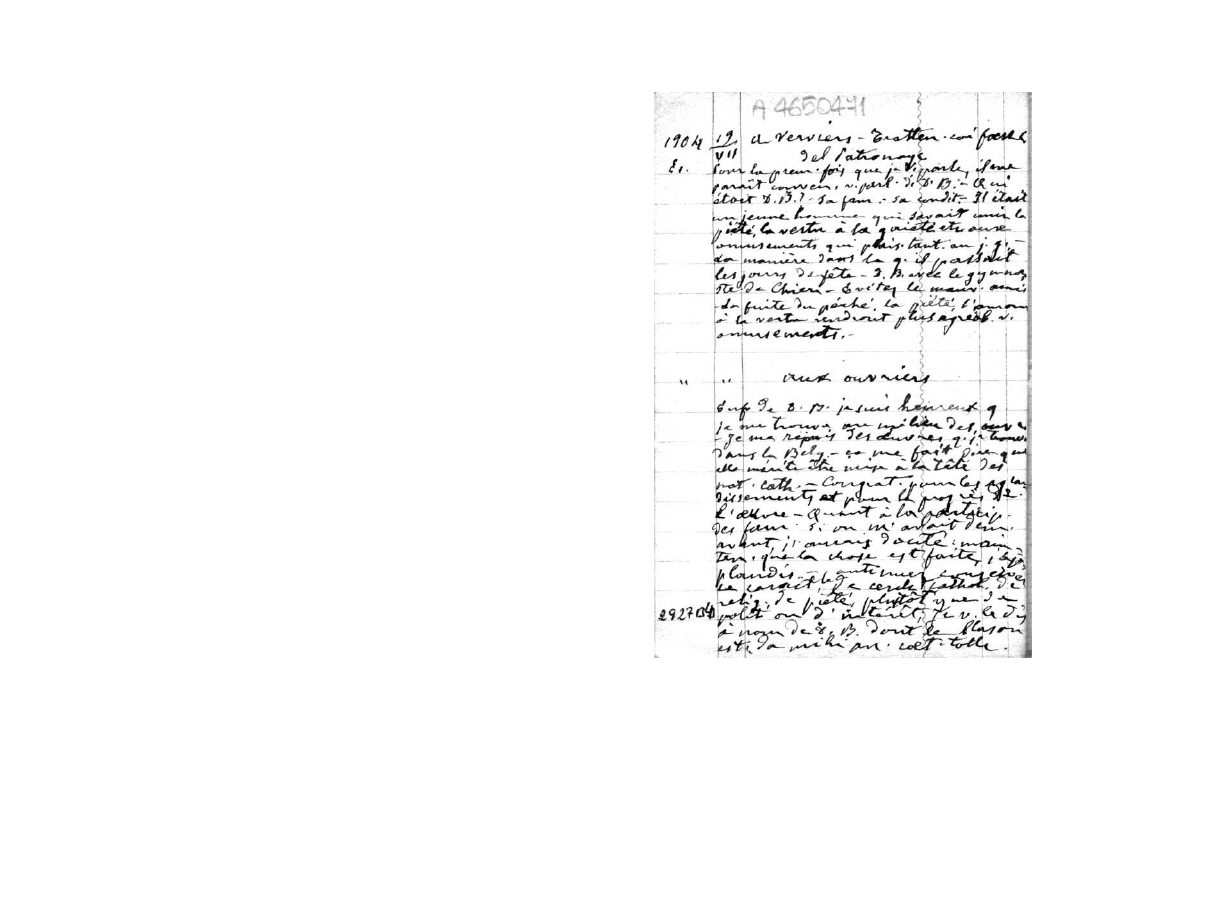 A 4650471
1904 19 A Verviers - Tratten. coi
VII del Patronage
Er. Pour la prem. fois que je v. parle, il me
paraît conven. v. parl. de D. B. - Qui
était D. B.? - Sa fam. - Sa condit. - Il était
un jeune homme qui savait unir la
piété, la vertu à la gaieté et aux
amusements qui plais. tant. au j. g. -
La manière dans la q. il passait
les jours de fête - D. B. avec le gymna
ste de Chieri - Evitez le mauv. amis
La fuite du péché, la piété l'amour
à la vertu rendront plus agréab. v.
amusements. -
" " aux ouvriers
de D. B. je suis heureux q
je me trouve au milieu des
- Je me des œuvres q. je trouve
dans la Belg. - ça me fait dire que
elle mérite être mise à la tête des
nat. cath. - Congrat. pour les
dissements et pour le progrès de
l'œuvre - Quant à la particip.
des fam. si on m'avait dem.
avant, j'aurais douté: main
ten. que la chose est faite, j'
plaudis. -
ce caract. de cercle cathol. de
relig. de piété, plutôt que de
2927 B4 polit ou d'intérêt; Je v. le dis
à nom de D. B. dont le blason
est: Da mihi an. caet. tolle.